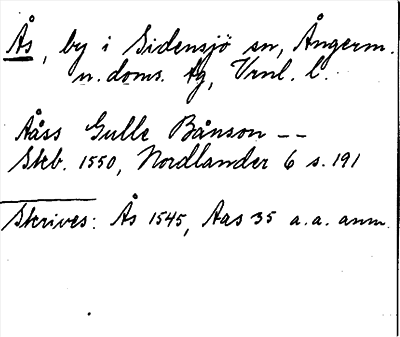 Ås, by i Sidensjö sn, Ångerm.
n. doms. tg, Vrnl. l.
Aåss Gulle Bånson --
Skb. 1550, Nordlander 6 s. 191
Skrives: Ås 1545, Aas 35 a.a. anm.